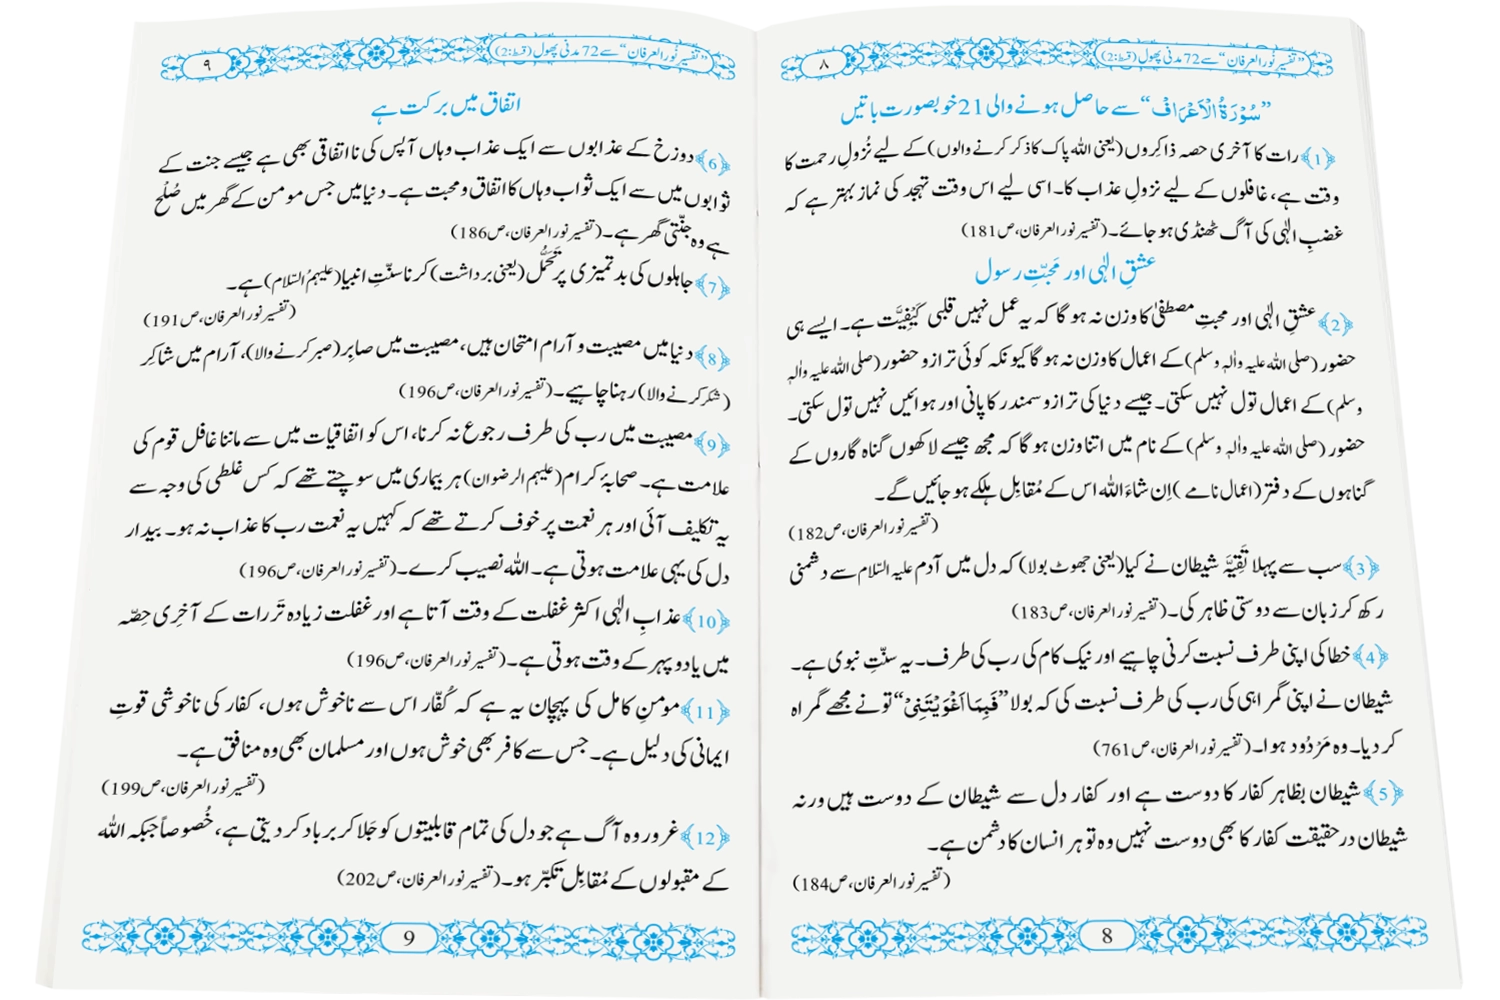 ”تفسیر نور العرفان“ سے 72 مدنی پھول (قسط:2)
۸
”سُوْرَۃُ الْاَعْرَاف“ سے حاصل ہونے والی 21 خوبصورت باتیں
﴿1﴾ رات کا آخری حصہ ذاکِروں (یعنی اللہ پاک کا ذکر کرنے والوں) کے لیے نُزولِ رحمت کا
وقت ہے، غافلوں کے لیے نزولِ عذاب کا۔ اسی لیے اس وقت تہجد کی نماز بہتر ہے کہ
غضبِ الٰہی کی آگ ٹھنڈی ہو جائے۔ (تفسیر نور العرفان، ص181)
عشقِ الٰہی اور مَحبّتِ رسول
﴿2﴾ عشقِ الٰہی اور محبتِ مصطفیٰ کا وزن نہ ہو گا کہ یہ عمل نہیں قلبی کَیْفِیَّت ہے۔ ایسے ہی
حضور (صلی اللہ علیہ واٰلہٖ وسلم) کے اعمال کا وزن نہ ہو گا کیونکہ کوئی ترازو حضور (صلی اللہ علیہ واٰلہٖ
وسلم) کے اعمال تول نہیں سکتی۔ جیسے دنیا کی ترازو سمندر کا پانی اور ہوائیں نہیں تول سکتی۔
حضور (صلی اللہ علیہ واٰلہٖ وسلم) کے نام میں اتنا وزن ہو گا کہ مجھ جیسے لاکھوں گناہ گاروں کے
گناہوں کے دفتر (اعمال نامے) اِن شاءَ اللہ اس کے مُقابِل ہلکے ہو جائیں گے۔
(تفسیر نور العرفان، ص182)
﴿3﴾ سب سے پہلا تَقِیَّہ شیطان نے کیا (یعنی جھوٹ بولا) کہ دل میں آدم علیہ السّلام سے دشمنی
رکھ کر زبان سے دوستی ظاہر کی۔ (تفسیر نور العرفان، ص183)
﴿4﴾ خطا کی اپنی طرف نسبت کرنی چاہیے اور نیک کام کی رب کی طرف۔ یہ سنّتِ نبوی ہے۔
شیطان نے اپنی گمراہی کی رب کی طرف نسبت کی کہ بولا ”فَبِمَاۤ اَغْوَیْتَنِیْ“ تو نے مجھے گمراہ
کر دیا۔ وہ مَرْدُود ہوا۔ (تفسیر نور العرفان، ص761)
﴿5﴾ شیطان بظاہر کفار کا دوست ہے اور کفار دل سے شیطان کے دوست ہیں ورنہ
شیطان درحقیقت کفار کا بھی دوست نہیں وہ تو ہر انسان کا دشمن ہے۔
(تفسیر نور العرفان، ص184)
8
”تفسیر نور العرفان“ سے 72 مدنی پھول (قسط:2)
۹
اتفاق میں برکت ہے
﴿6﴾ دوزخ کے عذابوں سے ایک عذاب وہاں آپس کی نااتفاقی بھی ہے جیسے جنت کے
ثوابوں میں سے ایک ثواب وہاں کا اتفاق و محبت ہے۔ دنیا میں جس مومن کے گھر میں صُلْح
ہے وہ جنّتی گھر ہے۔ (تفسیر نور العرفان، ص186)
﴿7﴾ جاہلوں کی بدتمیزی پر تَحَمُّل (یعنی برداشت) کرنا سنّتِ انبیا (علیہمُ السّلام) ہے۔
(تفسیر نور العرفان، ص191)
﴿8﴾ دنیا میں مصیبت و آرام امتحان ہیں، مصیبت میں صابِر (صبر کرنے والا)، آرام میں شاکِر
(شکر کرنے والا) رہنا چاہیے۔ (تفسیر نور العرفان، ص196)
﴿9﴾ مصیبت میں رب کی طرف رجوع نہ کرنا، اس کو اتفاقیات میں سے ماننا غافل قوم کی
علامت ہے۔ صحابۂ کرام (علیہم الرضوان) ہر بیماری میں سوچتے تھے کہ کس غلطی کی وجہ سے
یہ تکلیف آئی اور ہر نعمت پر خوف کرتے تھے کہ کہیں یہ نعمت رب کا عذاب نہ ہو۔ بیدار
دل کی یہی علامت ہوتی ہے۔ اللہ نصیب کرے۔ (تفسیر نور العرفان، ص196)
﴿10﴾ عذابِ الٰہی اکثر غفلت کے وقت آتا ہے اور غفلت زیادہ تَر رات کے آخِری حِصّہ
میں یا دوپہر کے وقت ہوتی ہے۔ (تفسیر نور العرفان، ص196)
﴿11﴾ مومنِ کامل کی پہچان یہ ہے کہ کُفّار اس سے ناخوش ہوں، کفار کی ناخوشی قوتِ
ایمانی کی دلیل ہے۔ جس سے کافر بھی خوش ہوں اور مسلمان بھی وہ منافق ہے۔
(تفسیر نور العرفان، ص199)
﴿12﴾ غرور وہ آگ ہے جو دل کی تمام قابلیتوں کو جَلا کر برباد کر دیتی ہے، خُصوصاً جبکہ اللہ
کے مقبولوں کے مُقابِل تکبّر ہو۔ (تفسیر نور العرفان، ص202)
9